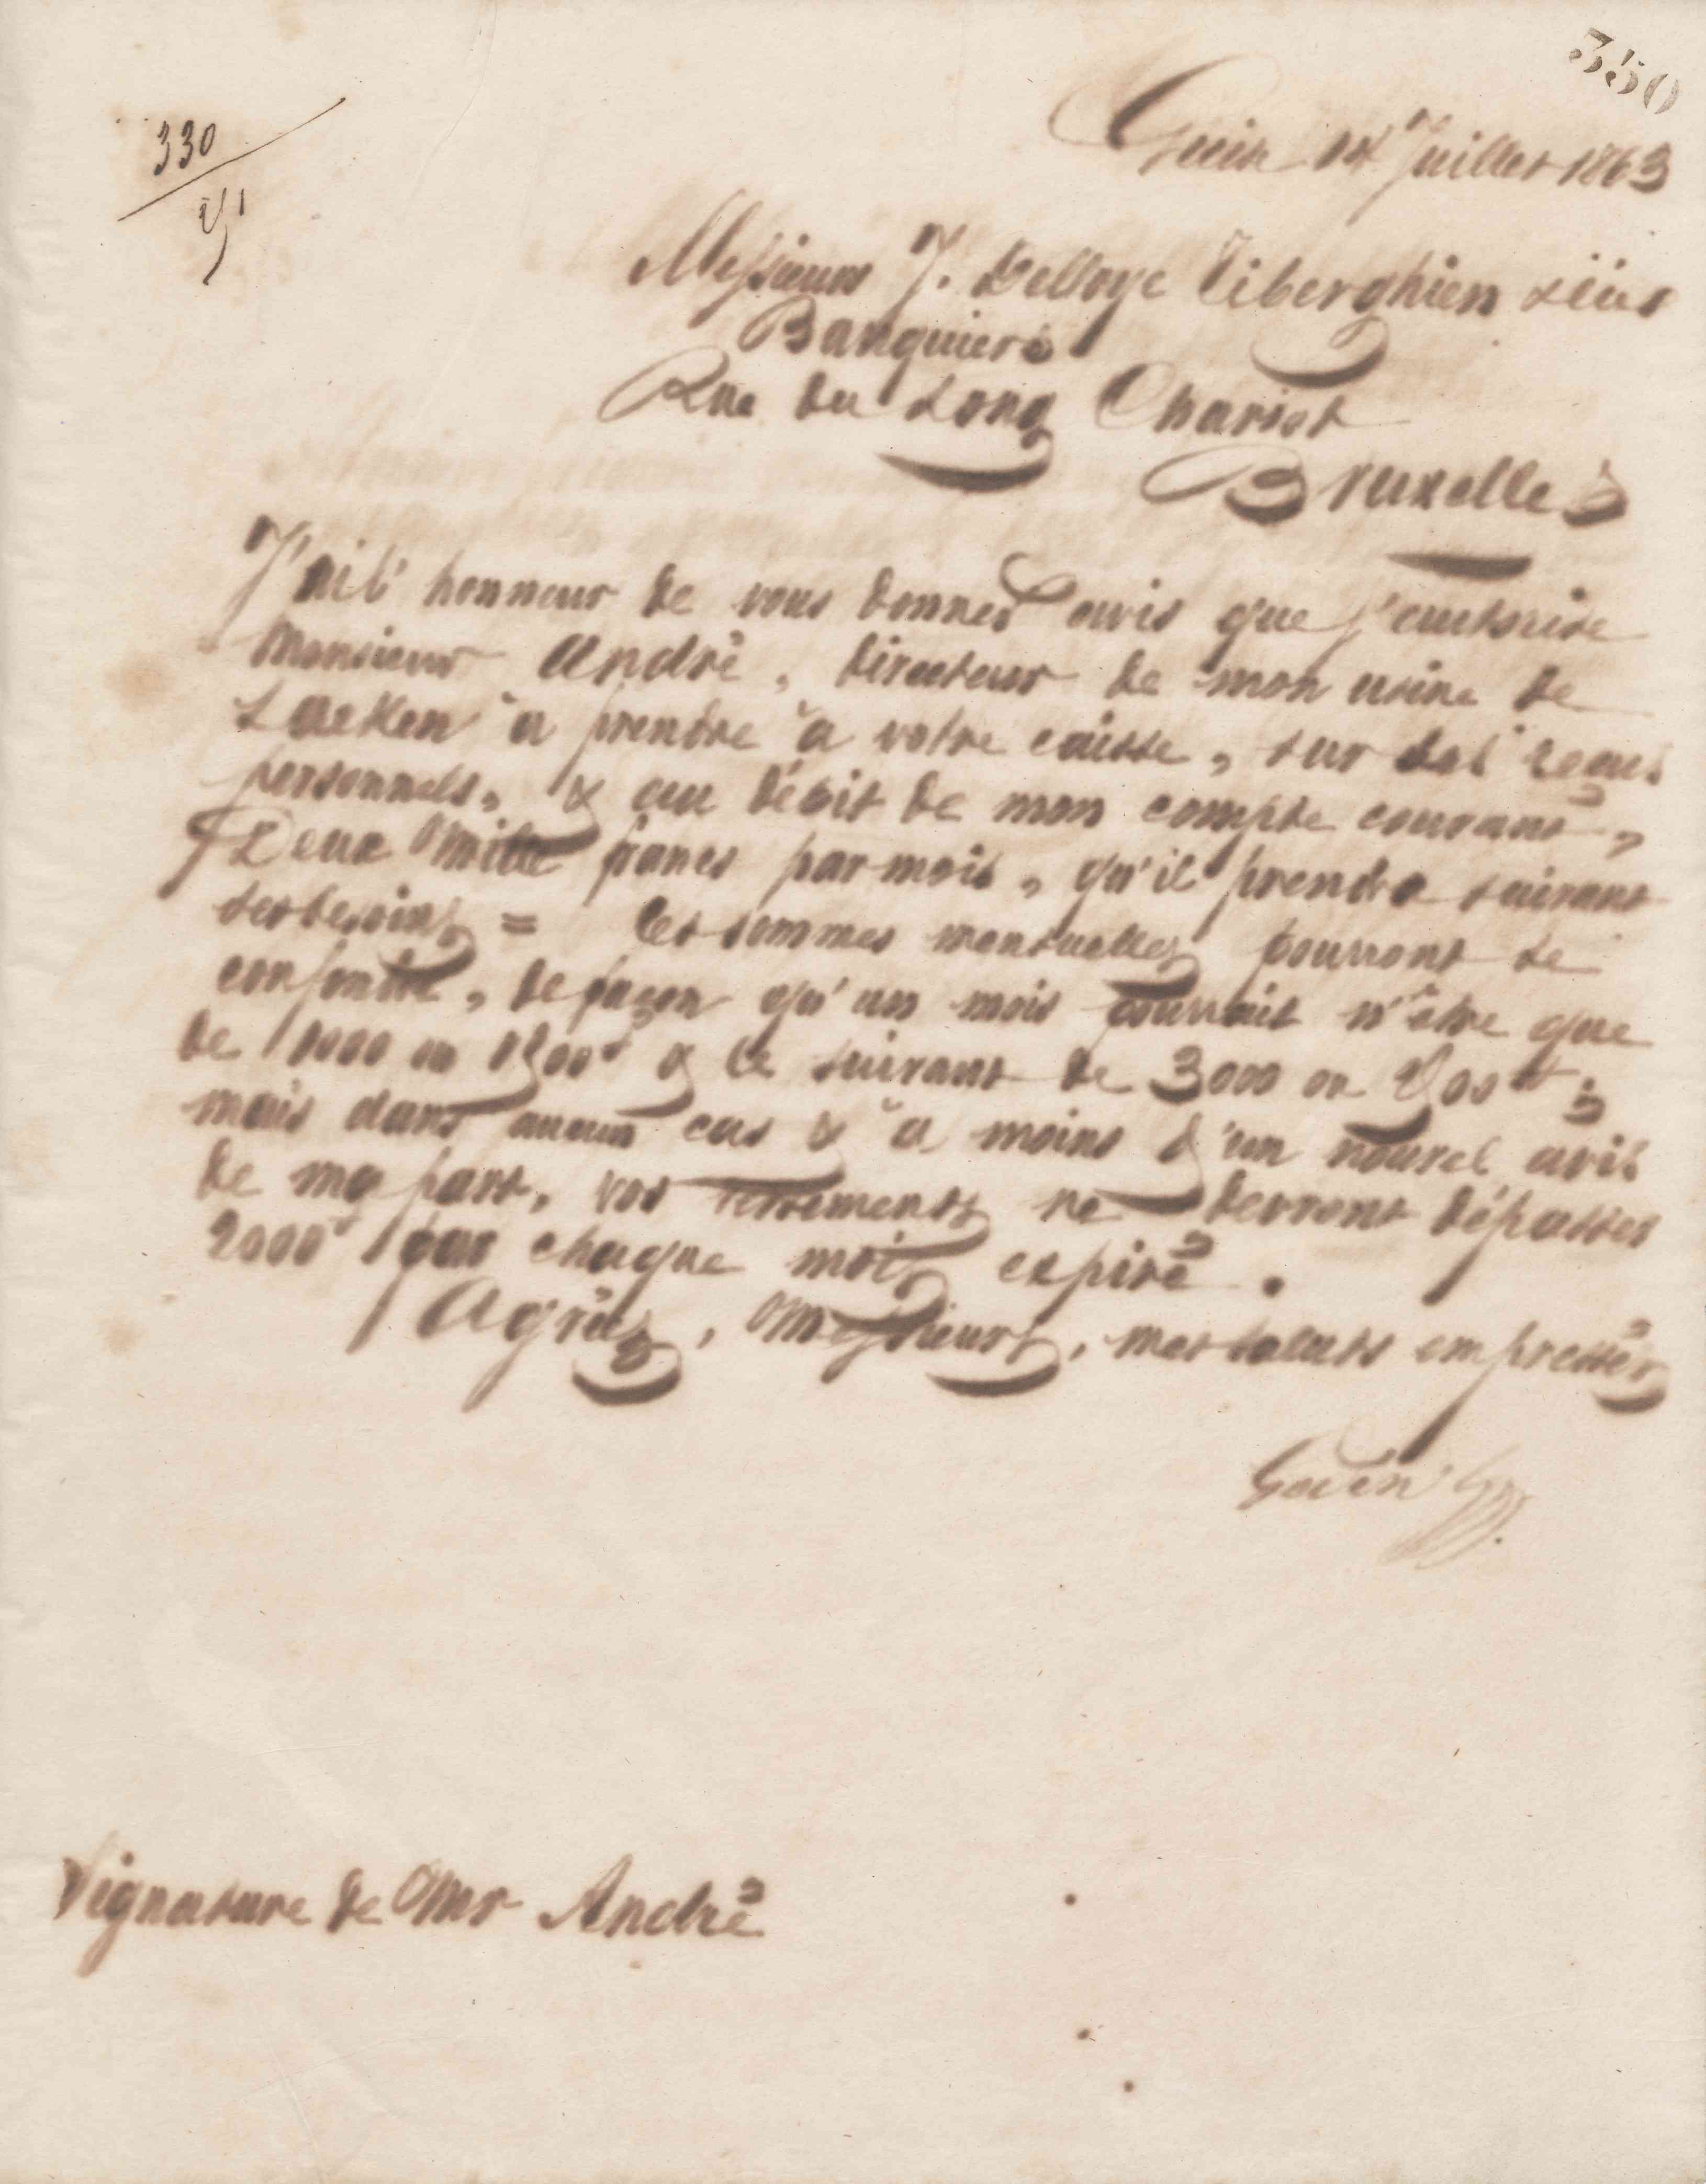 350
330
Guise 14 Juillet 1863
Messieurs J. Delloye Tiberghien
Banquiers
Rue du Long Chariot
Bruxelles
J'ai l'honneur de vous donner avis que j'autorise
Monsieur André, directeur de mon usine de
Laeken à prendre à votre caisse, sur ses reçus
personnels, & au débit de mon compte courant,
Deux Mille francs par mois, qu'il prendra suivant
ses besoins = Ces sommes mensuelles pourront se
confondre, de façon qu'un mois pourrait n'être que
de 1000 ou 1500 f & le suivant de 3000 ou
mais dans aucun cas & à moins d'un nouvel avis
de ma part, vos versements ne devront dépasser
2000 f par chaque mois expiré.
Agréez, Messieurs, mes saluts empressés
Godin
Signature de Mr André